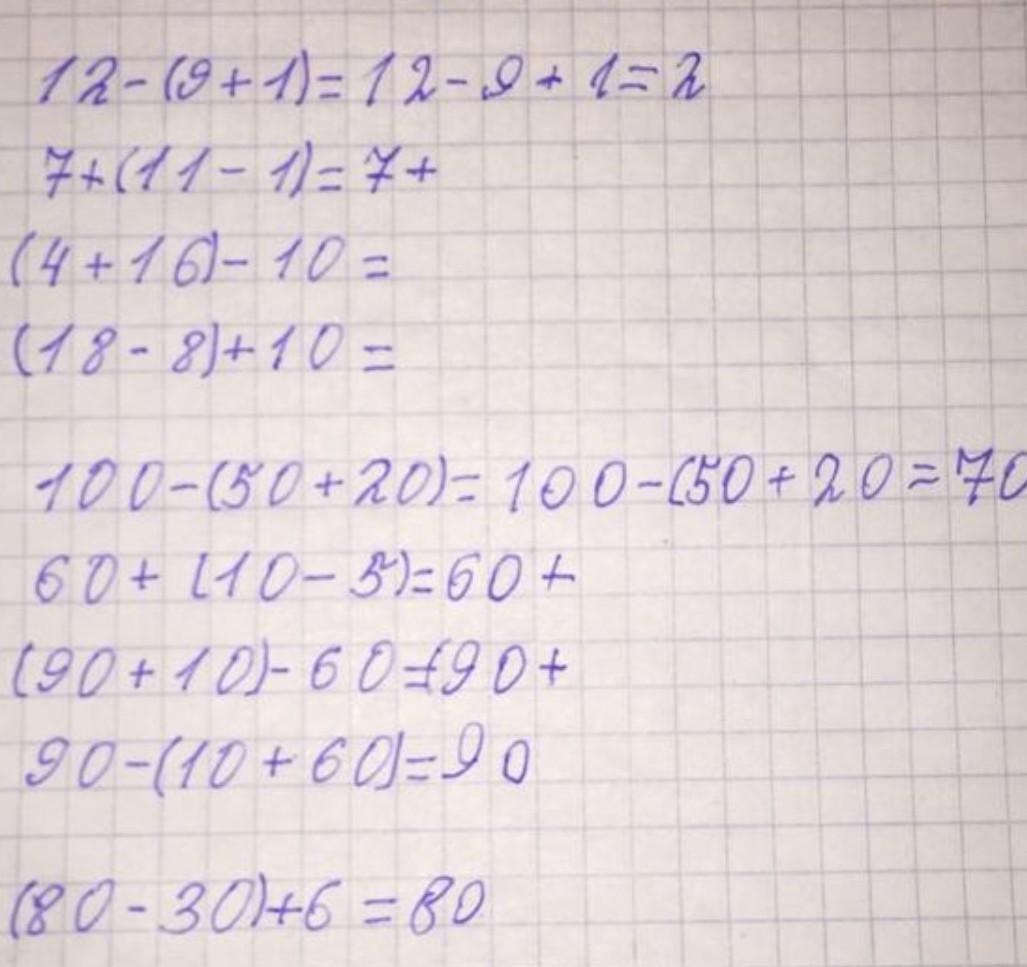 12-(9+1)=12-9+1=2
7+(11-1)=7+
(4+16)-10=
(18-8)+10=
100-(50+20)=100-(50+20=70
60+(10-5)=60+
(90+10)-60=(90+
90-(10+60)=90
(80-30)+6=80